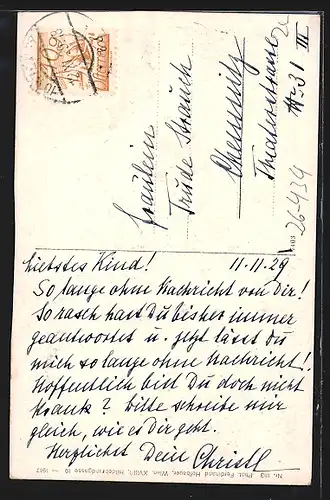 Fräulein
Trude Strauch
Chemnitz
Theaterstrasse
Nr. 31 III
26434
Liebstes Kind! 11.11.29
So lange ohne Nachricht von Dir!
So rasch hast Du bisher immer
geantwortet u. jetzt lässt Du
mich so lange ohne Nachricht!
Hoffentlich bist Du doch nicht
krank? Bitte schreibe mir
gleich, wie es Dir geht.
Herzlichst Dein Christl
Nr. 103 Phot. Ferdinand Hofbauer, Wien, XVIII/1, Hildebrandgasse 10 — 1927